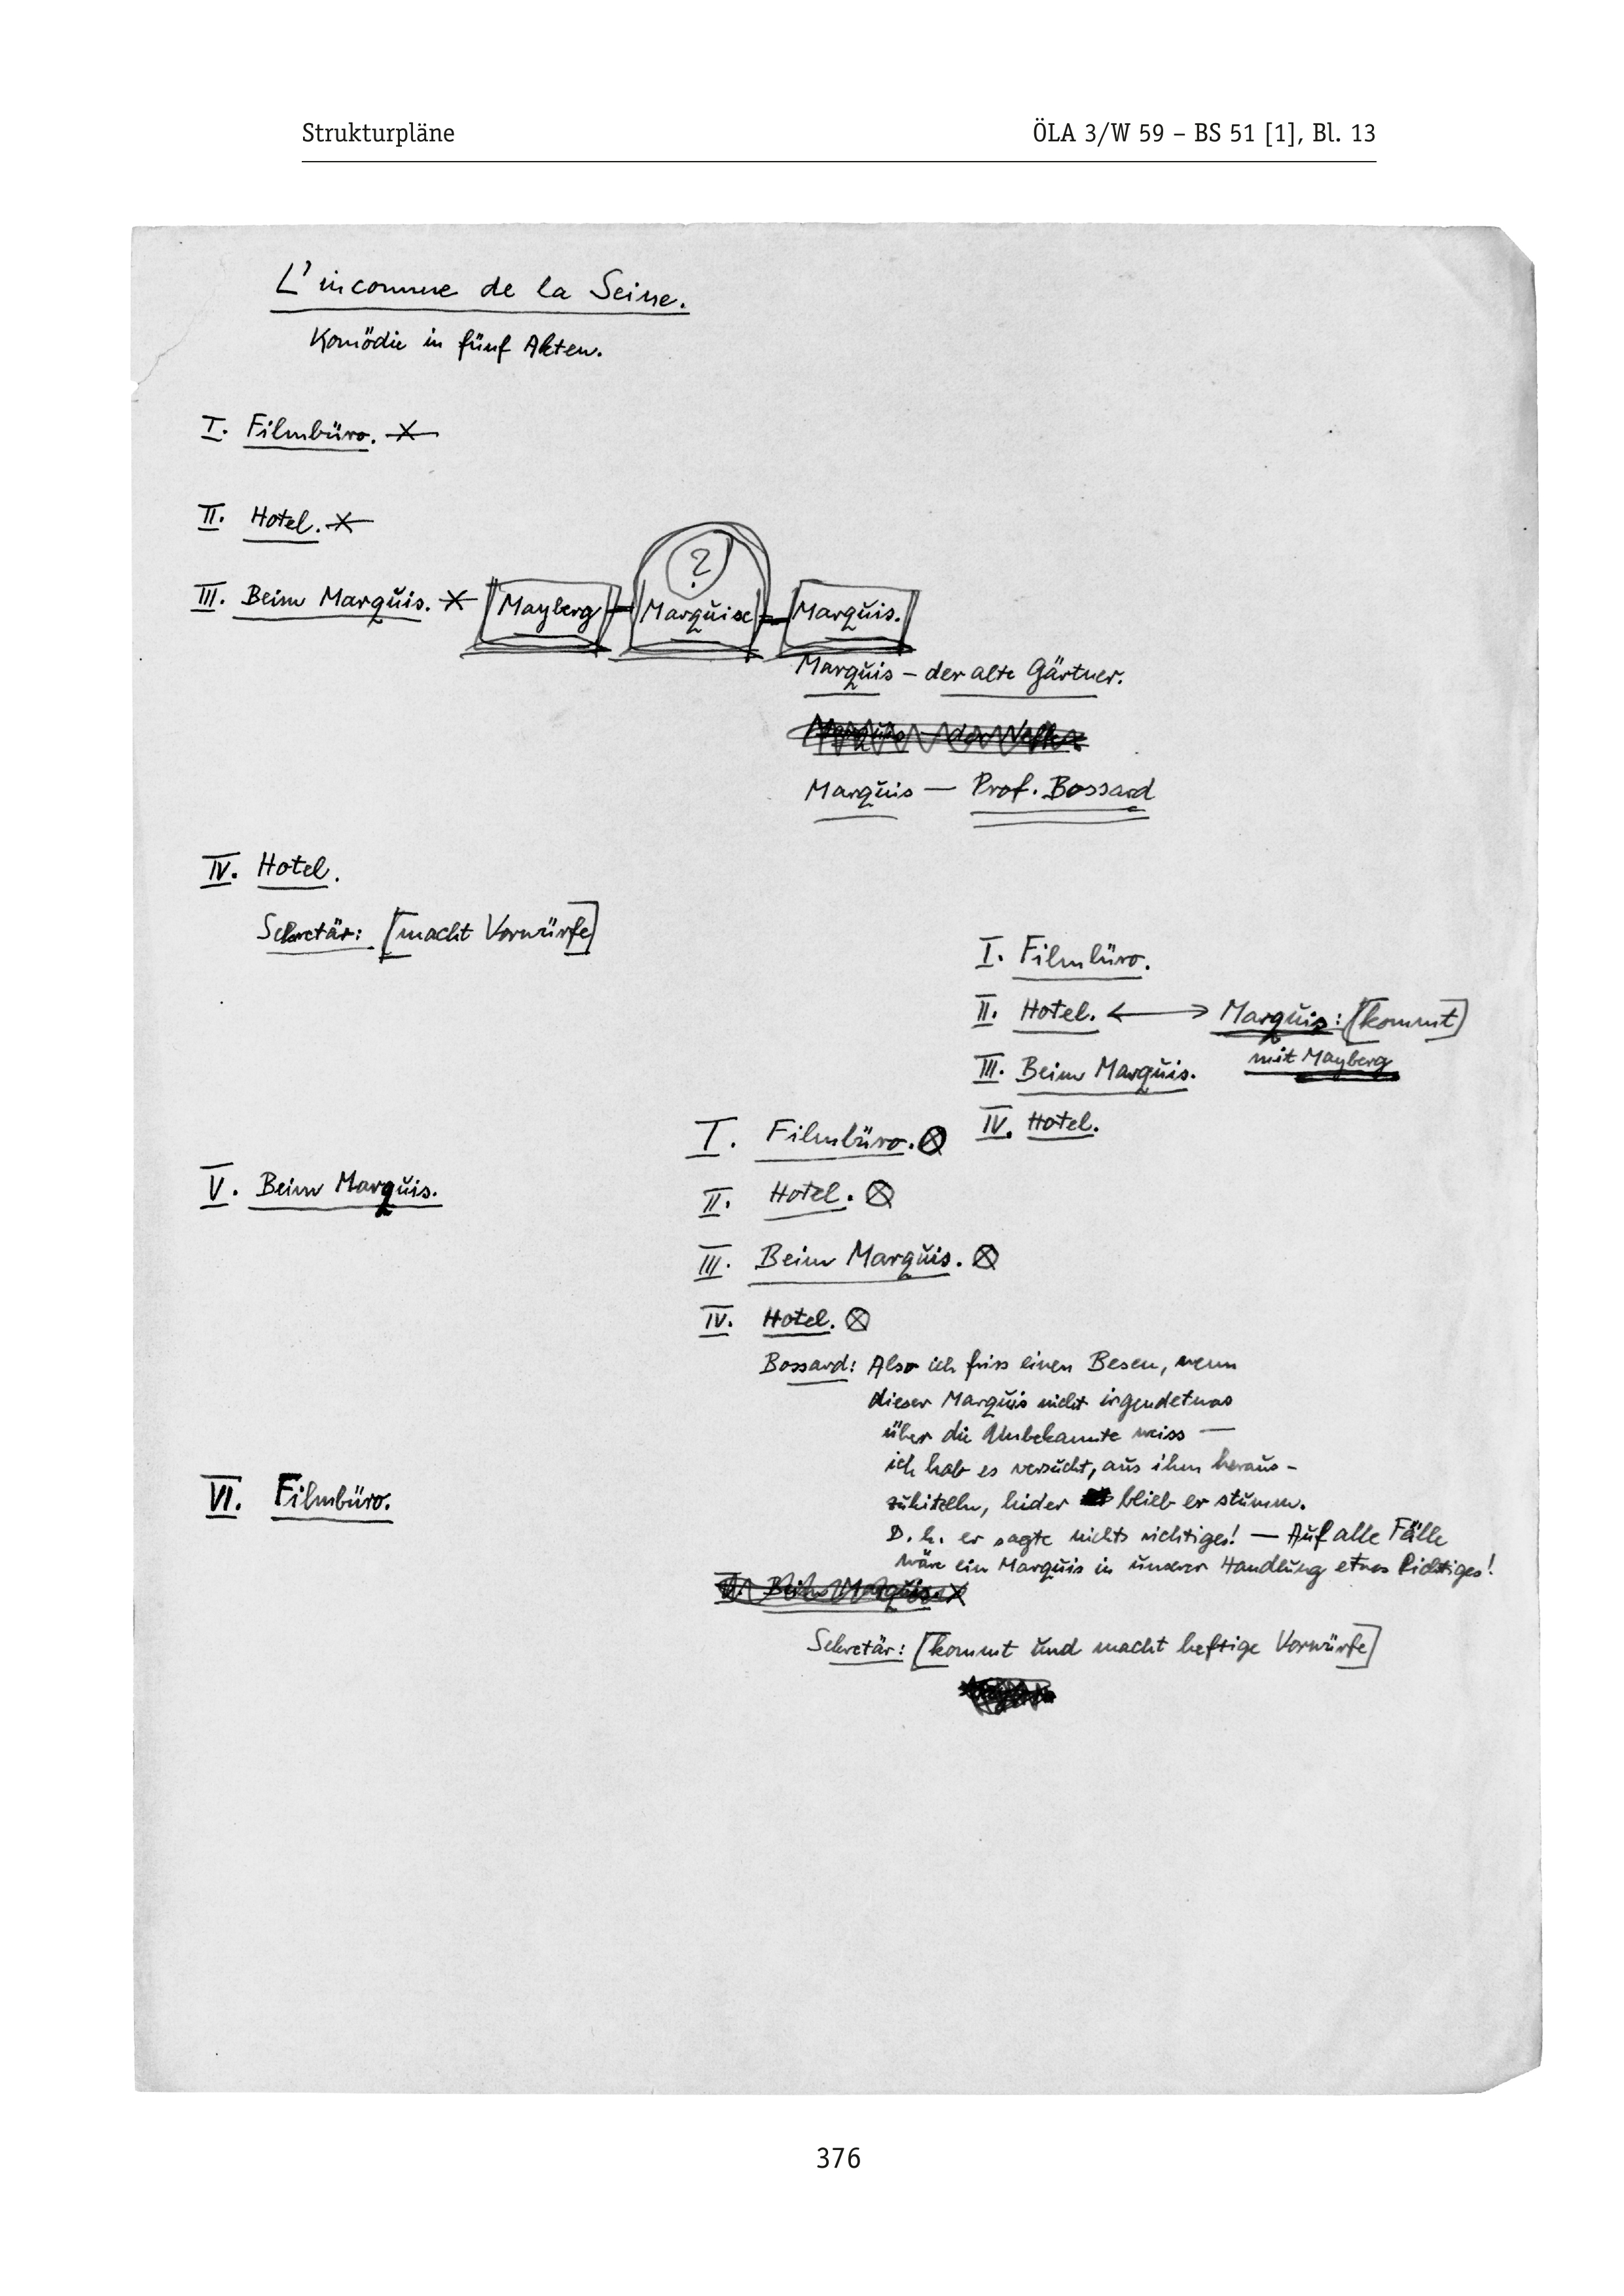 Strukturpläne ÖLA 3/W 59 – BS 51 [1], Bl. 13
L'inconnue de la Seine.
Komödie in fünf Akten.
I. Filmbüro.
II. Hotel.
III. Beim Marquis. Mayberg – Marquise – Marquis.
?
Marquis – der alte Gärtner.
Marquis — Prof. Bossard
IV. Hotel.
Sekretär: [macht Vorwürfe]
I. Filmbüro.
II. Hotel. ⟷ Marquis: [kommt]
mit Mayberg
III. Beim Marquis.
IV. Hotel.
I. Filmbüro. ⊗
II. Hotel. ⊗
III. Beim Marquis. ⊗
IV. Hotel. ⊗
Bossard: Also ich friss einen Besen, wenn
dieser Marquis nicht irgendetwas
über die Unbekannte weiss —
ich hab es versucht, aus ihm heraus-
zukitzeln, leider blieb er stumm.
D. h. er sagte nichts richtiges! — Auf alle Fälle
wäre ein Marquis in unserer Handlung etwas Richtiges!
V. Beim Marquis.
Sekretär: [kommt und macht heftige Vorwürfe]
V. Beim Marquis.
VI. Filmbüro.
376